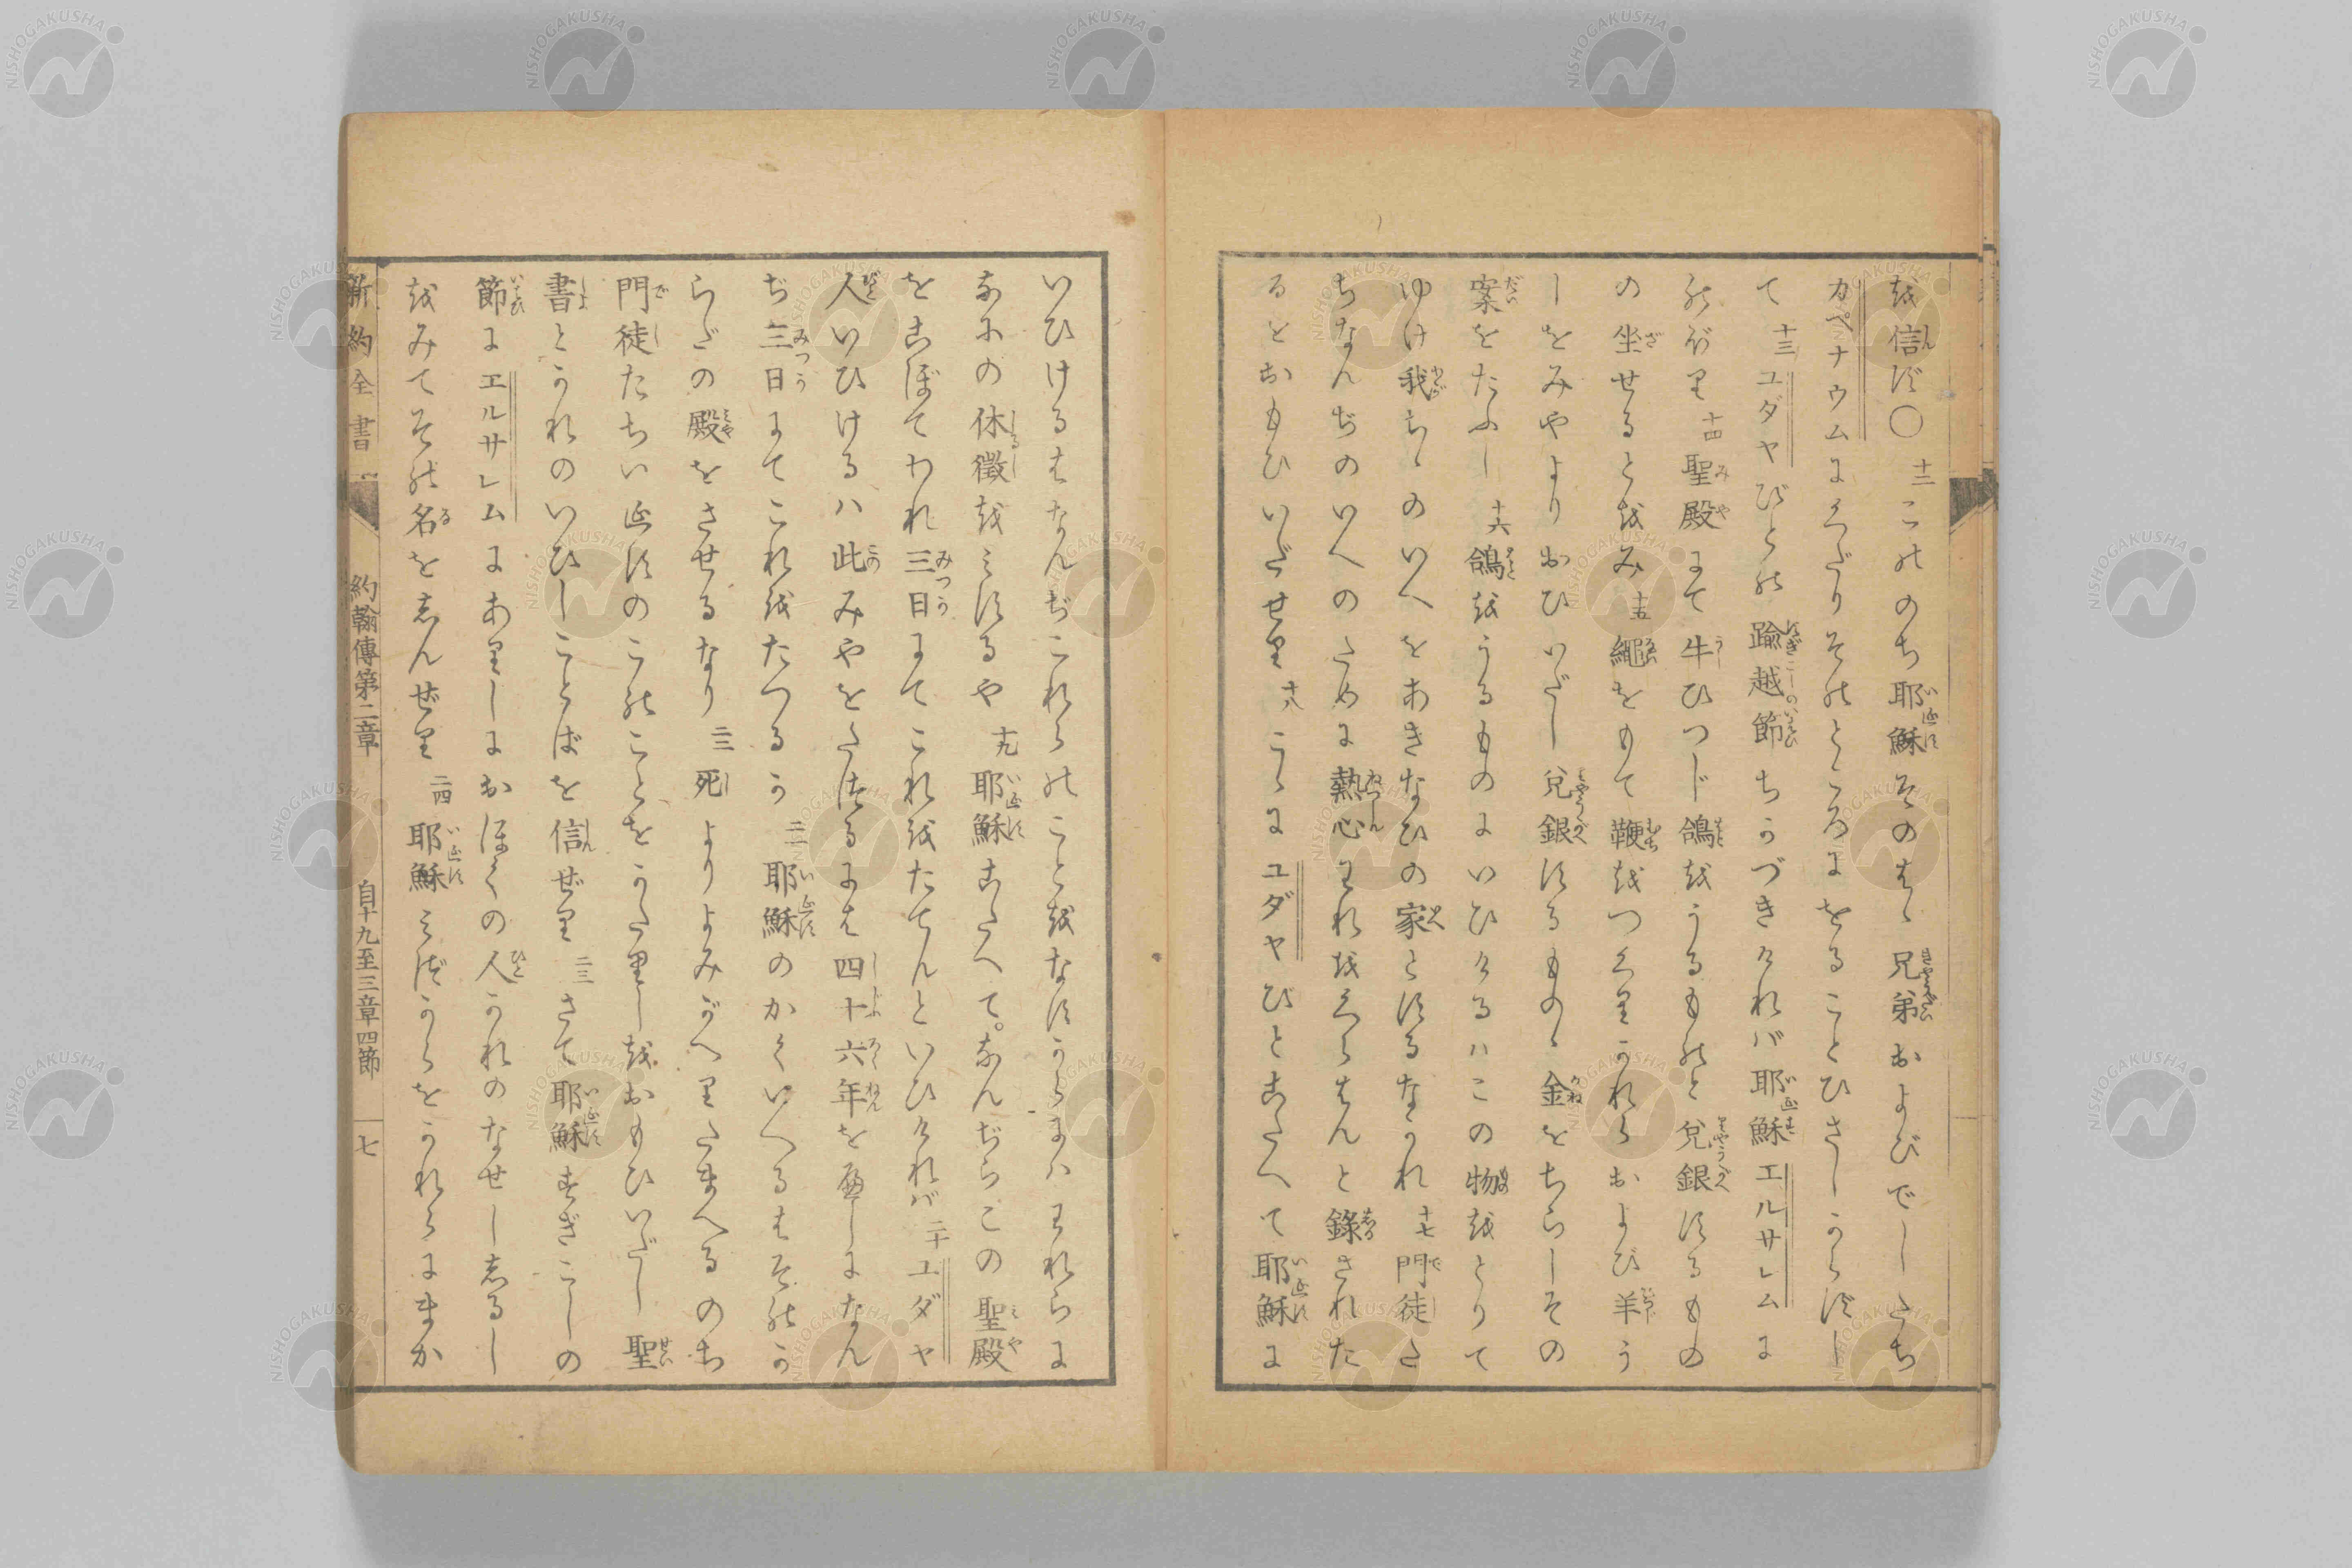 を信ず〇十二このゝち耶穌そのはゝ兄弟およびでしたち
カペナウムにくだりそのところにをることひさしからずし
て十三ユダヤびとの踰越節ちかづきければ耶穌エルサレムに
のぼり十四聖殿にて牛ひつじ鴿をうるものと兌銀するもの
の坐せるとをみ十五繩をもて鞭をつくりかれらおよび羊う
しをみやよりおひいだし兌銀するものゝ金をちらしその
案をたふし十六鴿をうるものにいひけるハこの物をとりて
ゆけ我ちゝのいへをあきなひの家とするなかれ十七門徒た
ちなんぢのいへのために熱心われをくらはんと錄された
るをおもひいだせり十八こゝにユダヤびとこたへて耶穌に
いひけるはなんぢこれらのことをなすからハわれらに
なにの休徵をみするや十九耶穌こたへて。なんぢらこの聖殿
をこぼてわれ三日にてこれをたてんといひければ二十ユダヤ
人いひけるハ此みやをたつるには四十六年を歷しになん
ぢ三日にてこれをたつるか二一耶穌のかくいへるはそのか
らだの殿をさせるなり二二死よりよみがへりたまへるのち
門徒たちいゑすのこのことをかたりしをおもひいだし聖
書とかれのいひしことばを信ぜり二三さて耶穌すぎこしの
節にエルサレムにありしにおほくの人かれのなせししるし
をみてその名をしんぜり二四耶穌みづからをかれらにまか
新約全書 約翰傳第二章 自十九至三章四節 七
NISHOGAKUSHA